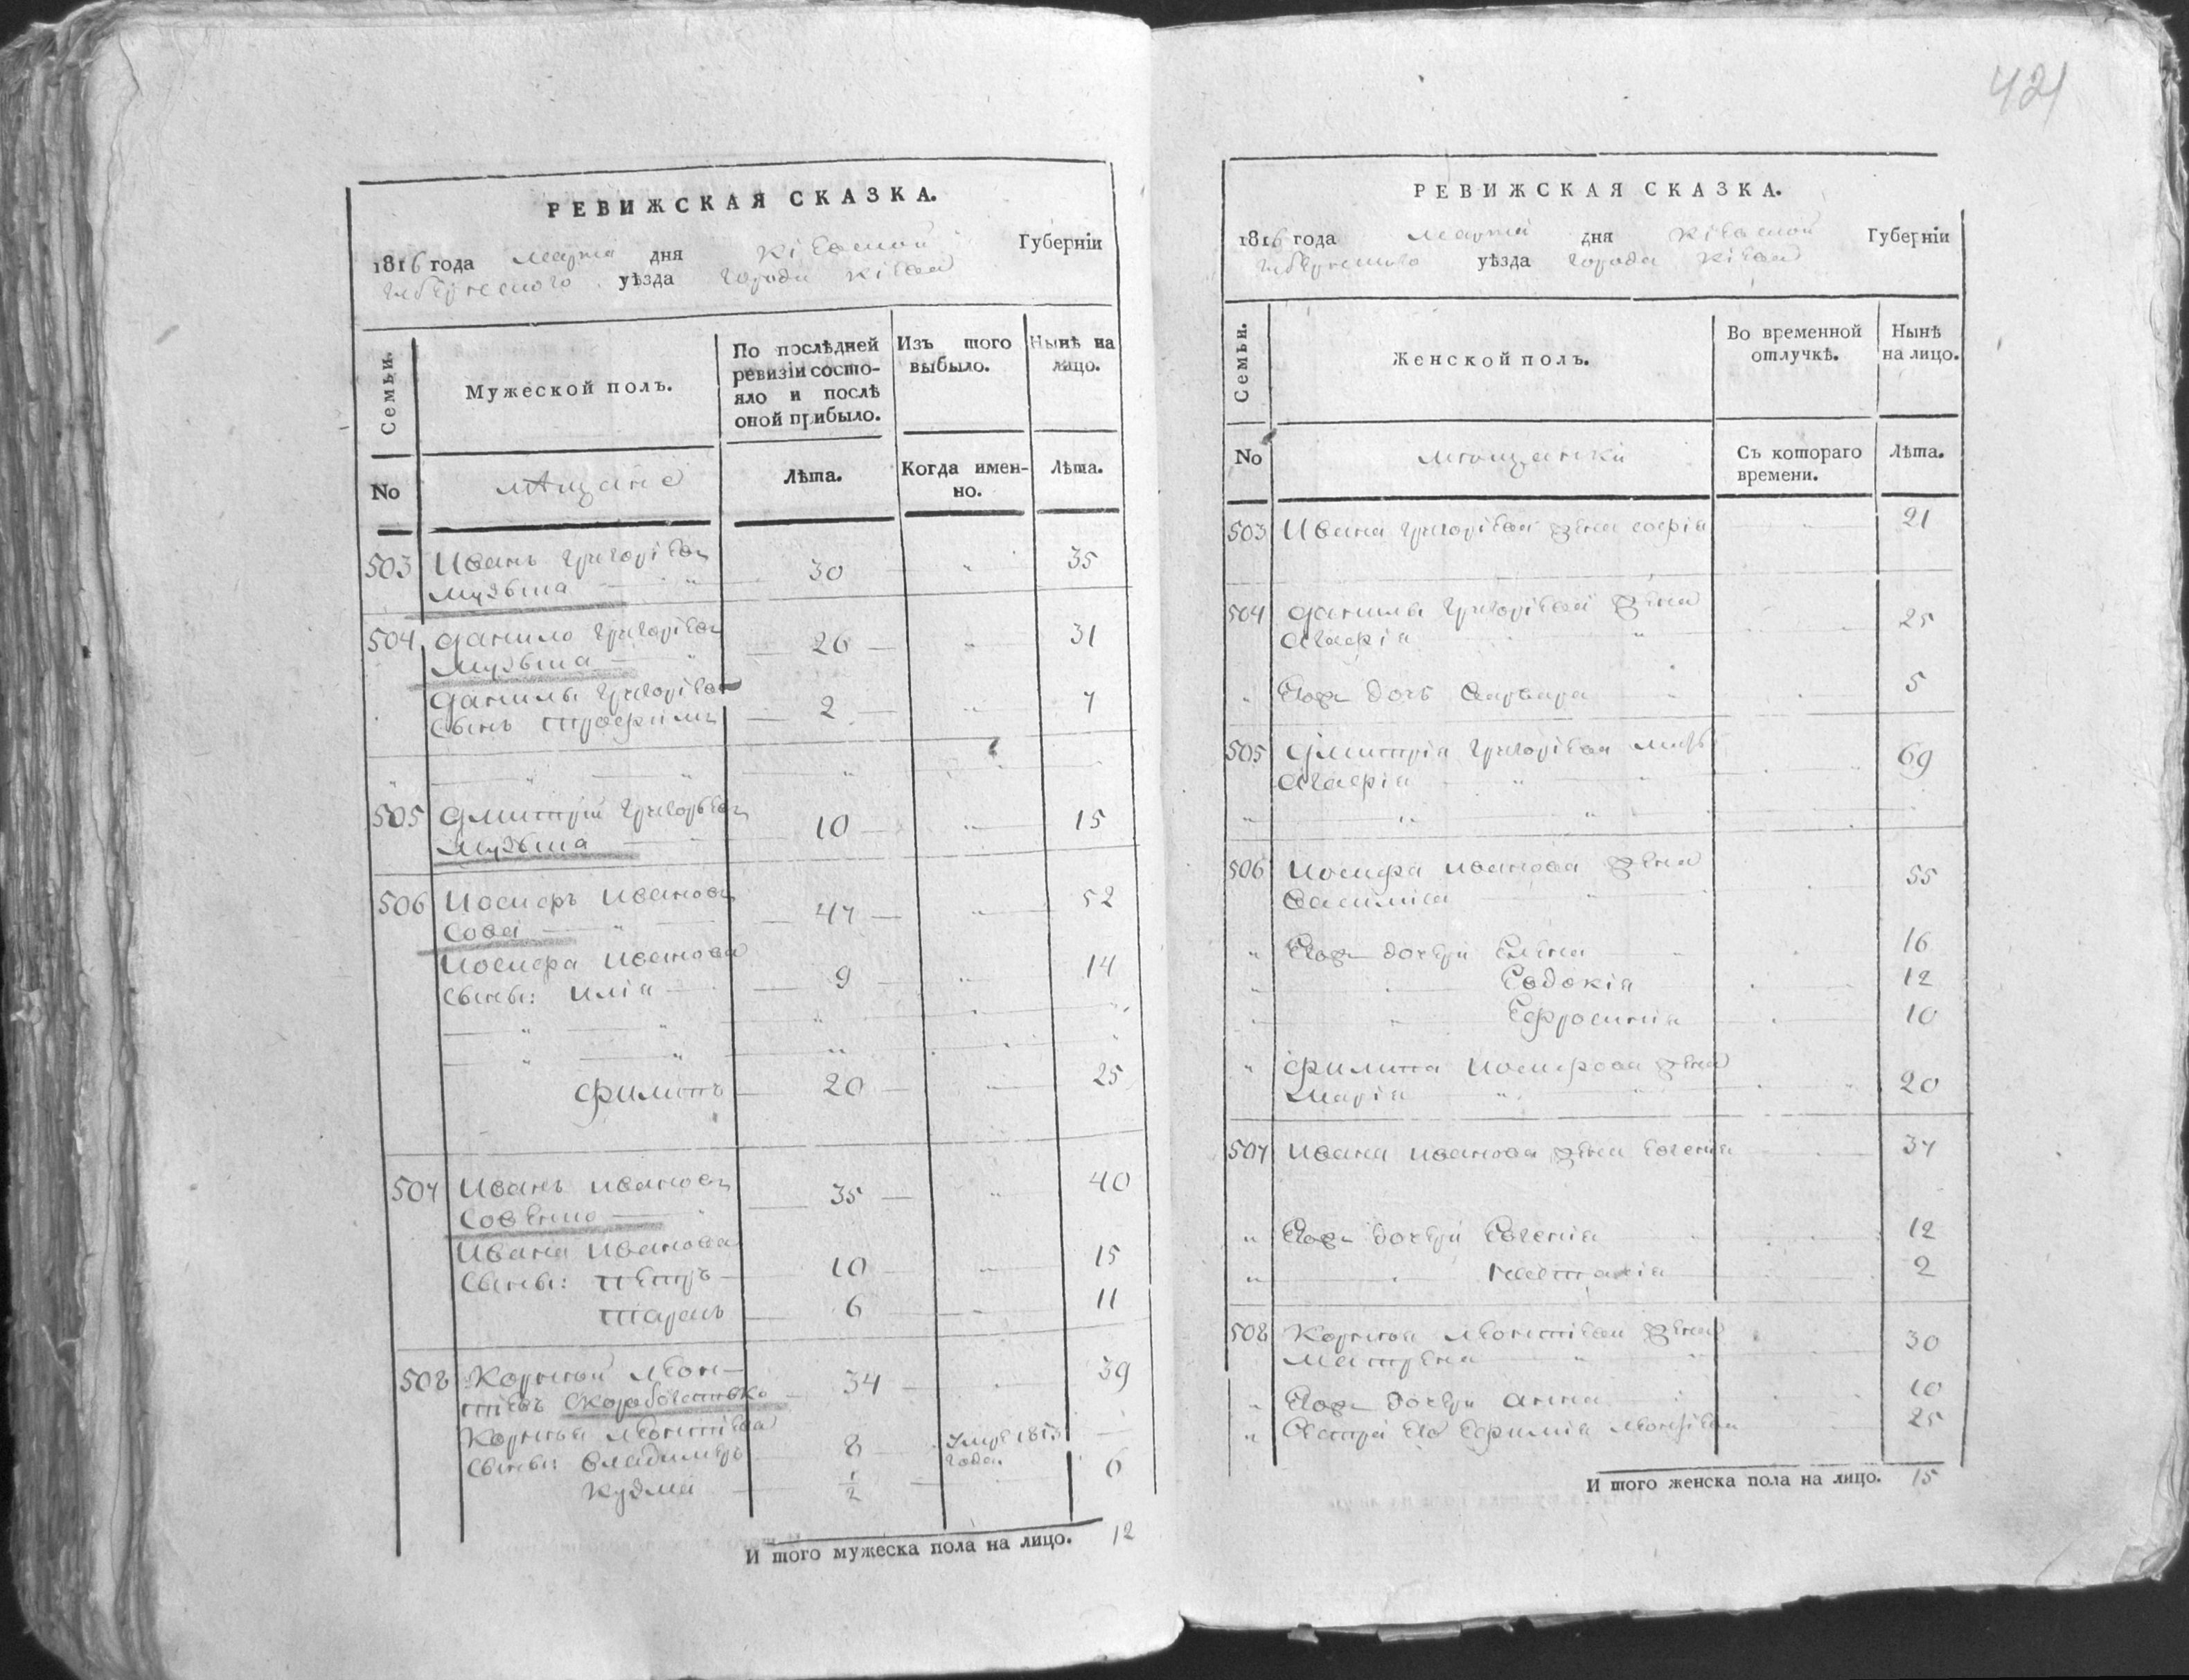 421
РЕВИЖСКАЯ СКАЗКА.
1816 года марта дня Кіевской Губерніи
уѣзда города Кіева
Семьи.
Мужеской полъ.
По послѣдней ревизіи состояло и послѣ оной прибыло.
Изъ того выбыло.
Нынѣ на лицо.
No
мѣщане
Лѣта.
Когда именно.
Лѣта.
503 Иванъ Григоріевъ
Музыка 30 35
504 Данило Григоріевъ
Музыка 26 31
Данилы Григоріева
сынъ Трофимъ 2 7
505 Дмитрій Григорьевъ
Музыка 10 15
506 Иосифъ Ивановъ
Сова 47 52
Иосифа Иванова
сыны: Илія 9 14
Филипъ 20 25
507 Иванъ Ивановъ
Совенко 35 40
Ивана Иванова
сыны: Петръ 10 15
Тарасъ 6 11
508 Корнѣй Леон-
тіевъ 34 39
Корнѣя Леонтіева
сыны: Владимиръ 8 умре 1813 года.
Кузма 1/2 6
И того мужеска пола на лицо. 12
РЕВИЖСКАЯ СКАЗКА.
1816 года марта дня Кіевской Губерніи
уѣзда города Кіева
Семьи.
Женской полъ.
Во временной отлучкѣ.
Нынѣ на лицо.
No
мѣщанки
Съ котораго времени.
Лѣта.
503 Ивана Григоріева жена Софія 21
504 Данилы Григоріева жена
Агафія 25
Его дочь Варвара 5
505 Дмитрія Григоріева мать
Агафія 69
506 Иосифа Иванова жена
Василиса 55
Его дочери Елена 16
Евдокія 12
Ефросинія 10
Филипа Иосифова жена
Марія 20
507 Ивана Иванова жена Евгенія 37
Его дочери Евгенія 12
2
508 Корнѣя Леонтіева жена
Матрена 30
Его дочери Анна 10
Сестра его Ефимія Леонтіева 25
И того женска пола на лицо. 15